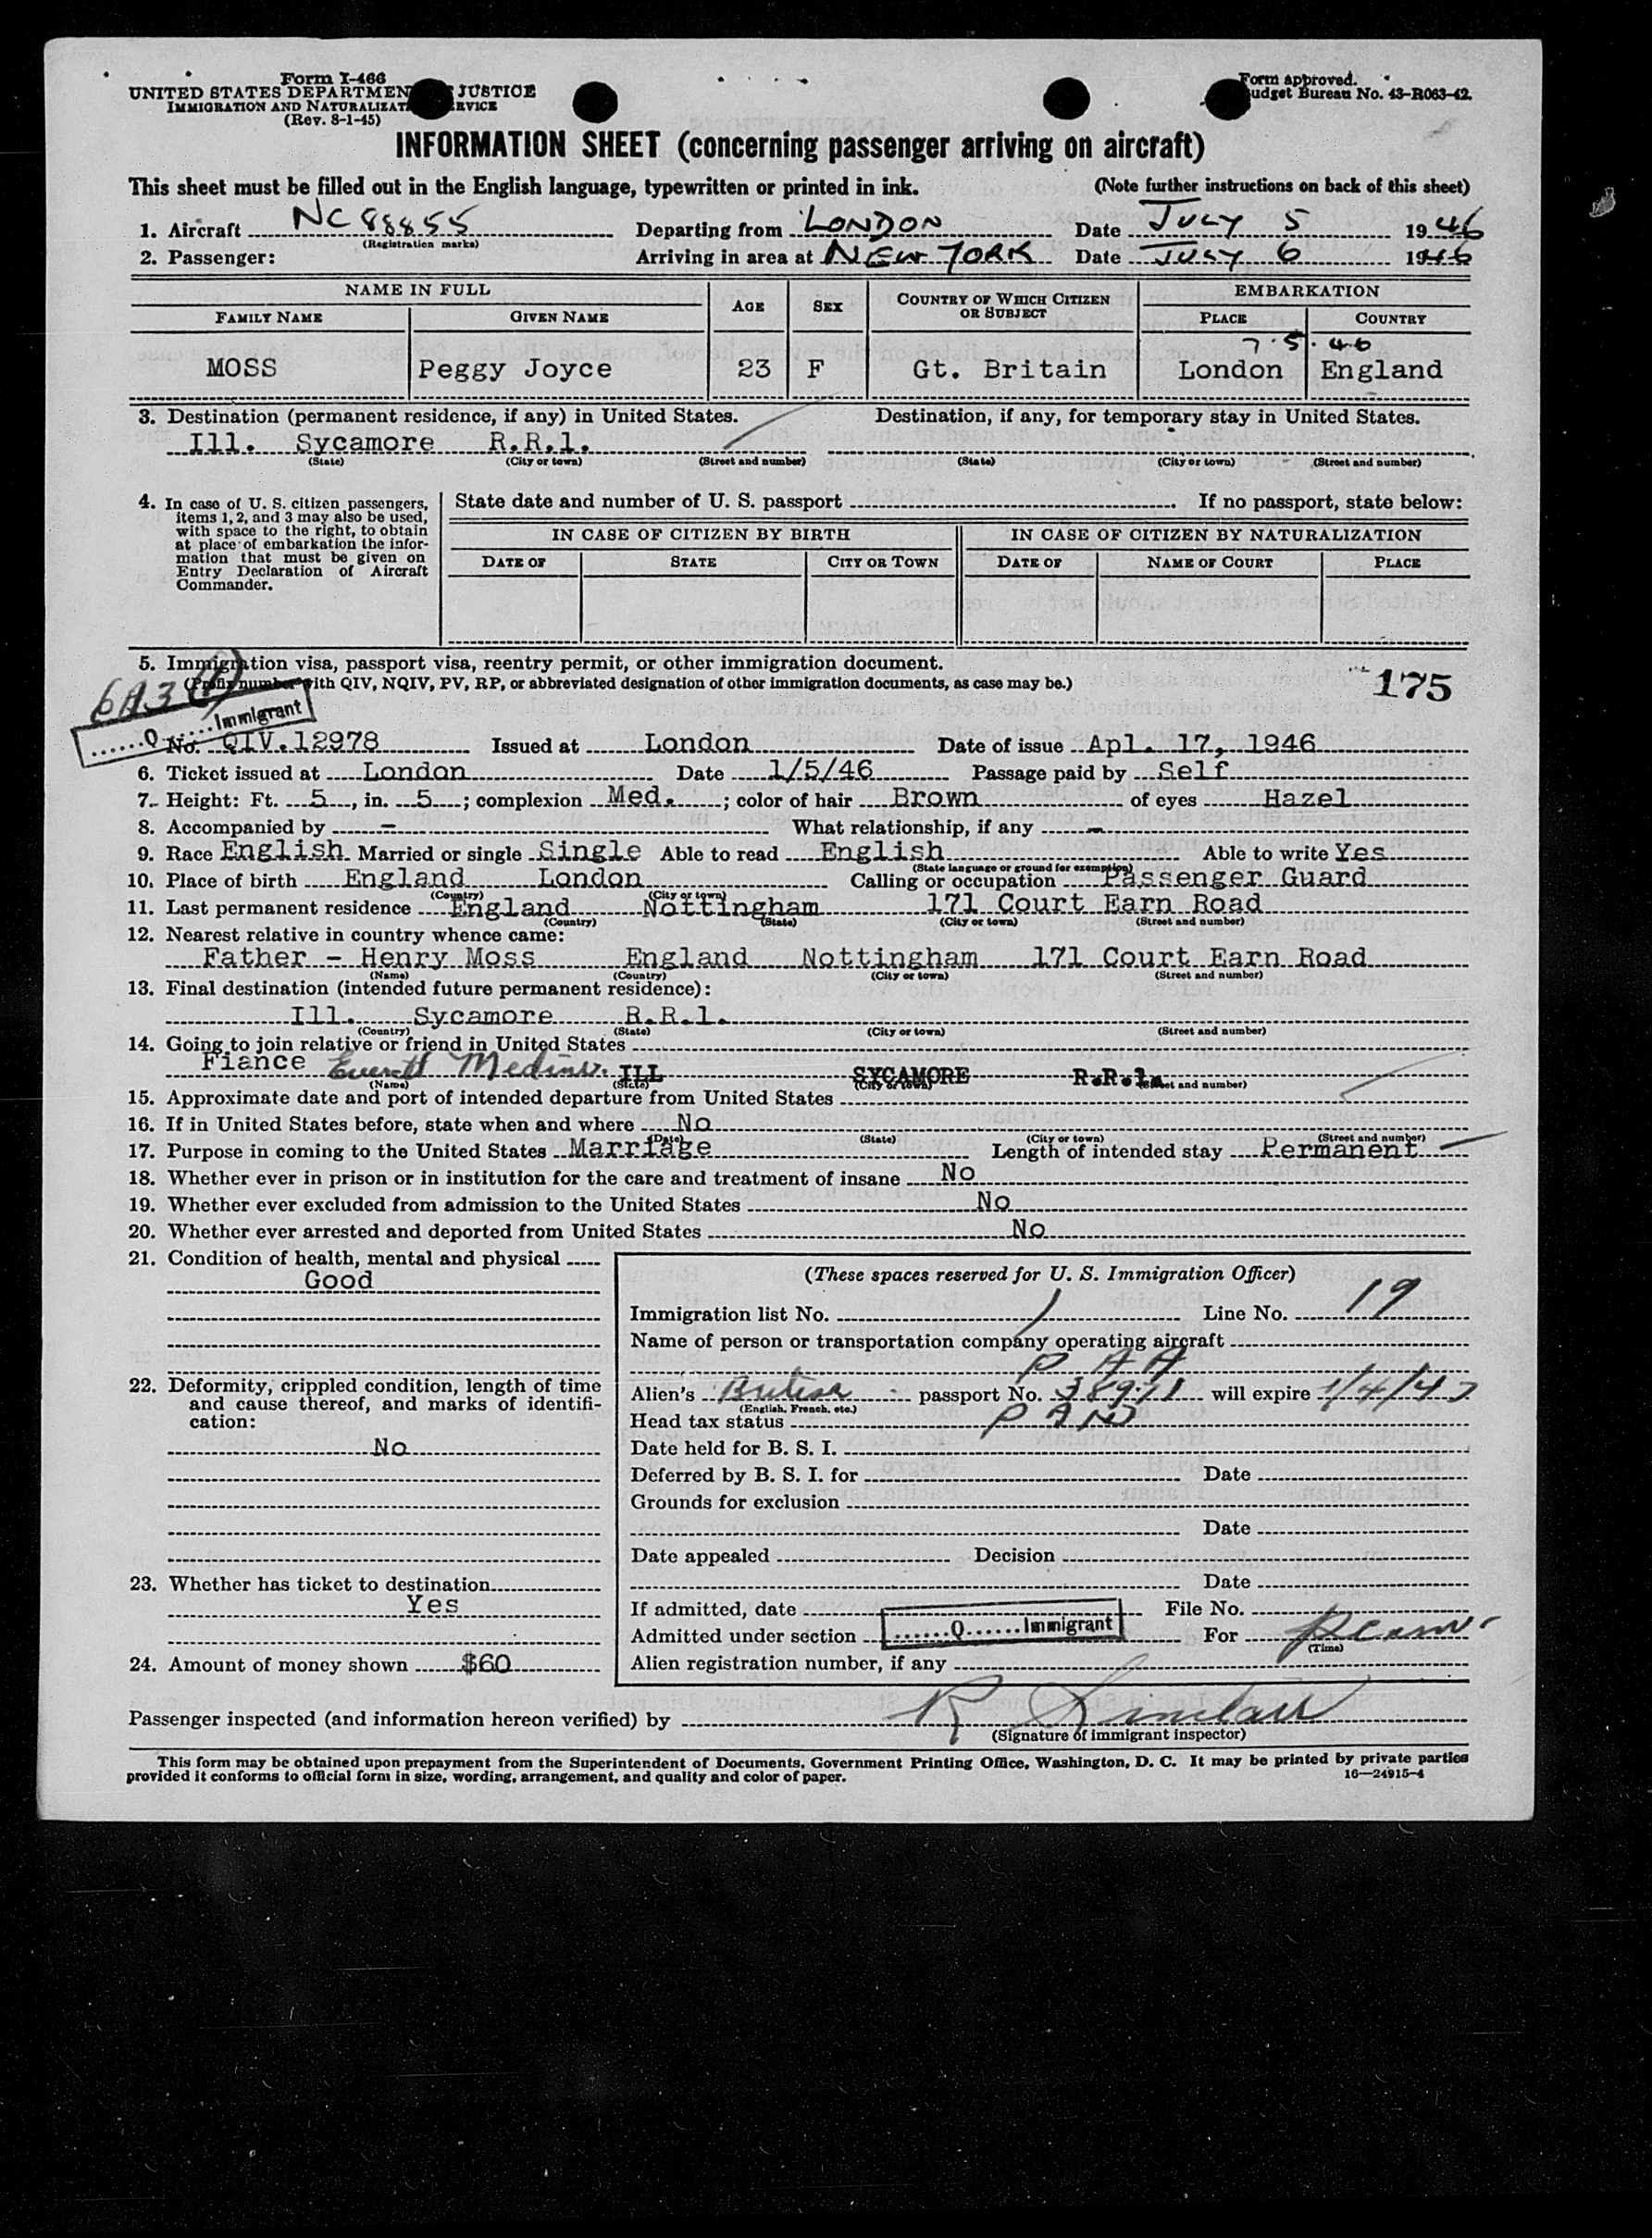 Form I-466
UNITED STATES DEPARTMEN JUSTICE
IMMIGRATION AND NATURALIZAT ERVICE
(Rev. 8-1-45)
Form approved.
udget Bureau No. 43-R063-42.
INFORMATION SHEET (concerning passenger arriving on aircraft)
This sheet must be filled out in the English language, typewritten or printed in ink. (Note further instructions on back of this sheet)
1. Aircraft NC88855 Departing from LONDON Date JULY 5 1946
(Registration marks)
2. Passenger: Arriving in area at NEW YORK Date JULY 6 1946
NAME IN FULL AGE SEX COUNTRY OF WHICH CITIZEN OR SUBJECT EMBARKATION
FAMILY NAME GIVEN NAME PLACE COUNTRY
7.5.46
MOSS Peggy Joyce 23 F Gt. Britain London England
3. Destination (permanent residence, if any) in United States. Destination, if any, for temporary stay in United States.
Ill. Sycamore R.R.1.
(State) (City or town) (Street and number) (State) (City or town) (Street and number)
4. In case of U. S. citizen passengers, items 1, 2, and 3 may also be used, with space to the right, to obtain at place of embarkation the information that must be given on Entry Declaration of Aircraft Commander.
State date and number of U. S. passport . If no passport, state below:
IN CASE OF CITIZEN BY BIRTH IN CASE OF CITIZEN BY NATURALIZATION
DATE OF STATE CITY OR TOWN DATE OF NAME OF COURT PLACE
5. Immigration visa, passport visa, reentry permit, or other immigration document.
(Prefix number with QIV, NQIV, PV, RP, or abbreviated designation of other immigration documents, as case may be.)
175
6A3(1)
......Q......Immigrant
No. QIV.12978 Issued at London Date of issue Apl. 17, 1946
6. Ticket issued at London Date 1/5/46 Passage paid by Self
7. Height: Ft. 5, in. 5; complexion Med. ; color of hair Brown of eyes Hazel
8. Accompanied by - What relationship, if any -
9. Race English Married or single Single Able to read English Able to write Yes
(State language or ground for exemption)
10. Place of birth England London Calling or occupation Passenger Guard
(Country) (City or town)
11. Last permanent residence England Nottingham 171 Court Earn Road
(Country) (State) (City or town) (Street and number)
12. Nearest relative in country whence came:
Father - Henry Moss England Nottingham 171 Court Earn Road
(Name) (Country) (City or town) (Street and number)
13. Final destination (intended future permanent residence):
Ill. Sycamore R.R.1.
(Country) (State) (City or town) (Street and number)
14. Going to join relative or friend in United States
Fiance Everett ILL SYCAMORE R.R.1.
(Name) (State) (City or town) (Street and number)
15. Approximate date and port of intended departure from United States
16. If in United States before, state when and where No
(Date) (State) (City or town) (Street and number)
17. Purpose in coming to the United States Marriage Length of intended stay Permanent
18. Whether ever in prison or in institution for the care and treatment of insane No
19. Whether ever excluded from admission to the United States No
20. Whether ever arrested and deported from United States No
21. Condition of health, mental and physical
Good
22. Deformity, crippled condition, length of time and cause thereof, and marks of identification:
No
23. Whether has ticket to destination
Yes
24. Amount of money shown $60
(These spaces reserved for U. S. Immigration Officer)
Immigration list No. 1 Line No. 19
Name of person or transportation company operating aircraft
P A A
Alien's British passport No. 38971 will expire 1/4/47
(English, French, etc.)
Head tax status PAID
Date held for B. S. I.
Deferred by B. S. I. for Date
Grounds for exclusion
Date
Date appealed Decision
Date
If admitted, date File No.
Admitted under section ......Q......Immigrant For
(Time)
Alien registration number, if any
Passenger inspected (and information hereon verified) by R Sinclair
(Signature of immigrant inspector)
This form may be obtained upon prepayment from the Superintendent of Documents, Government Printing Office, Washington, D. C. It may be printed by private parties
provided it conforms to official form in size, wording, arrangement, and quality and color of paper. 16—24915-4